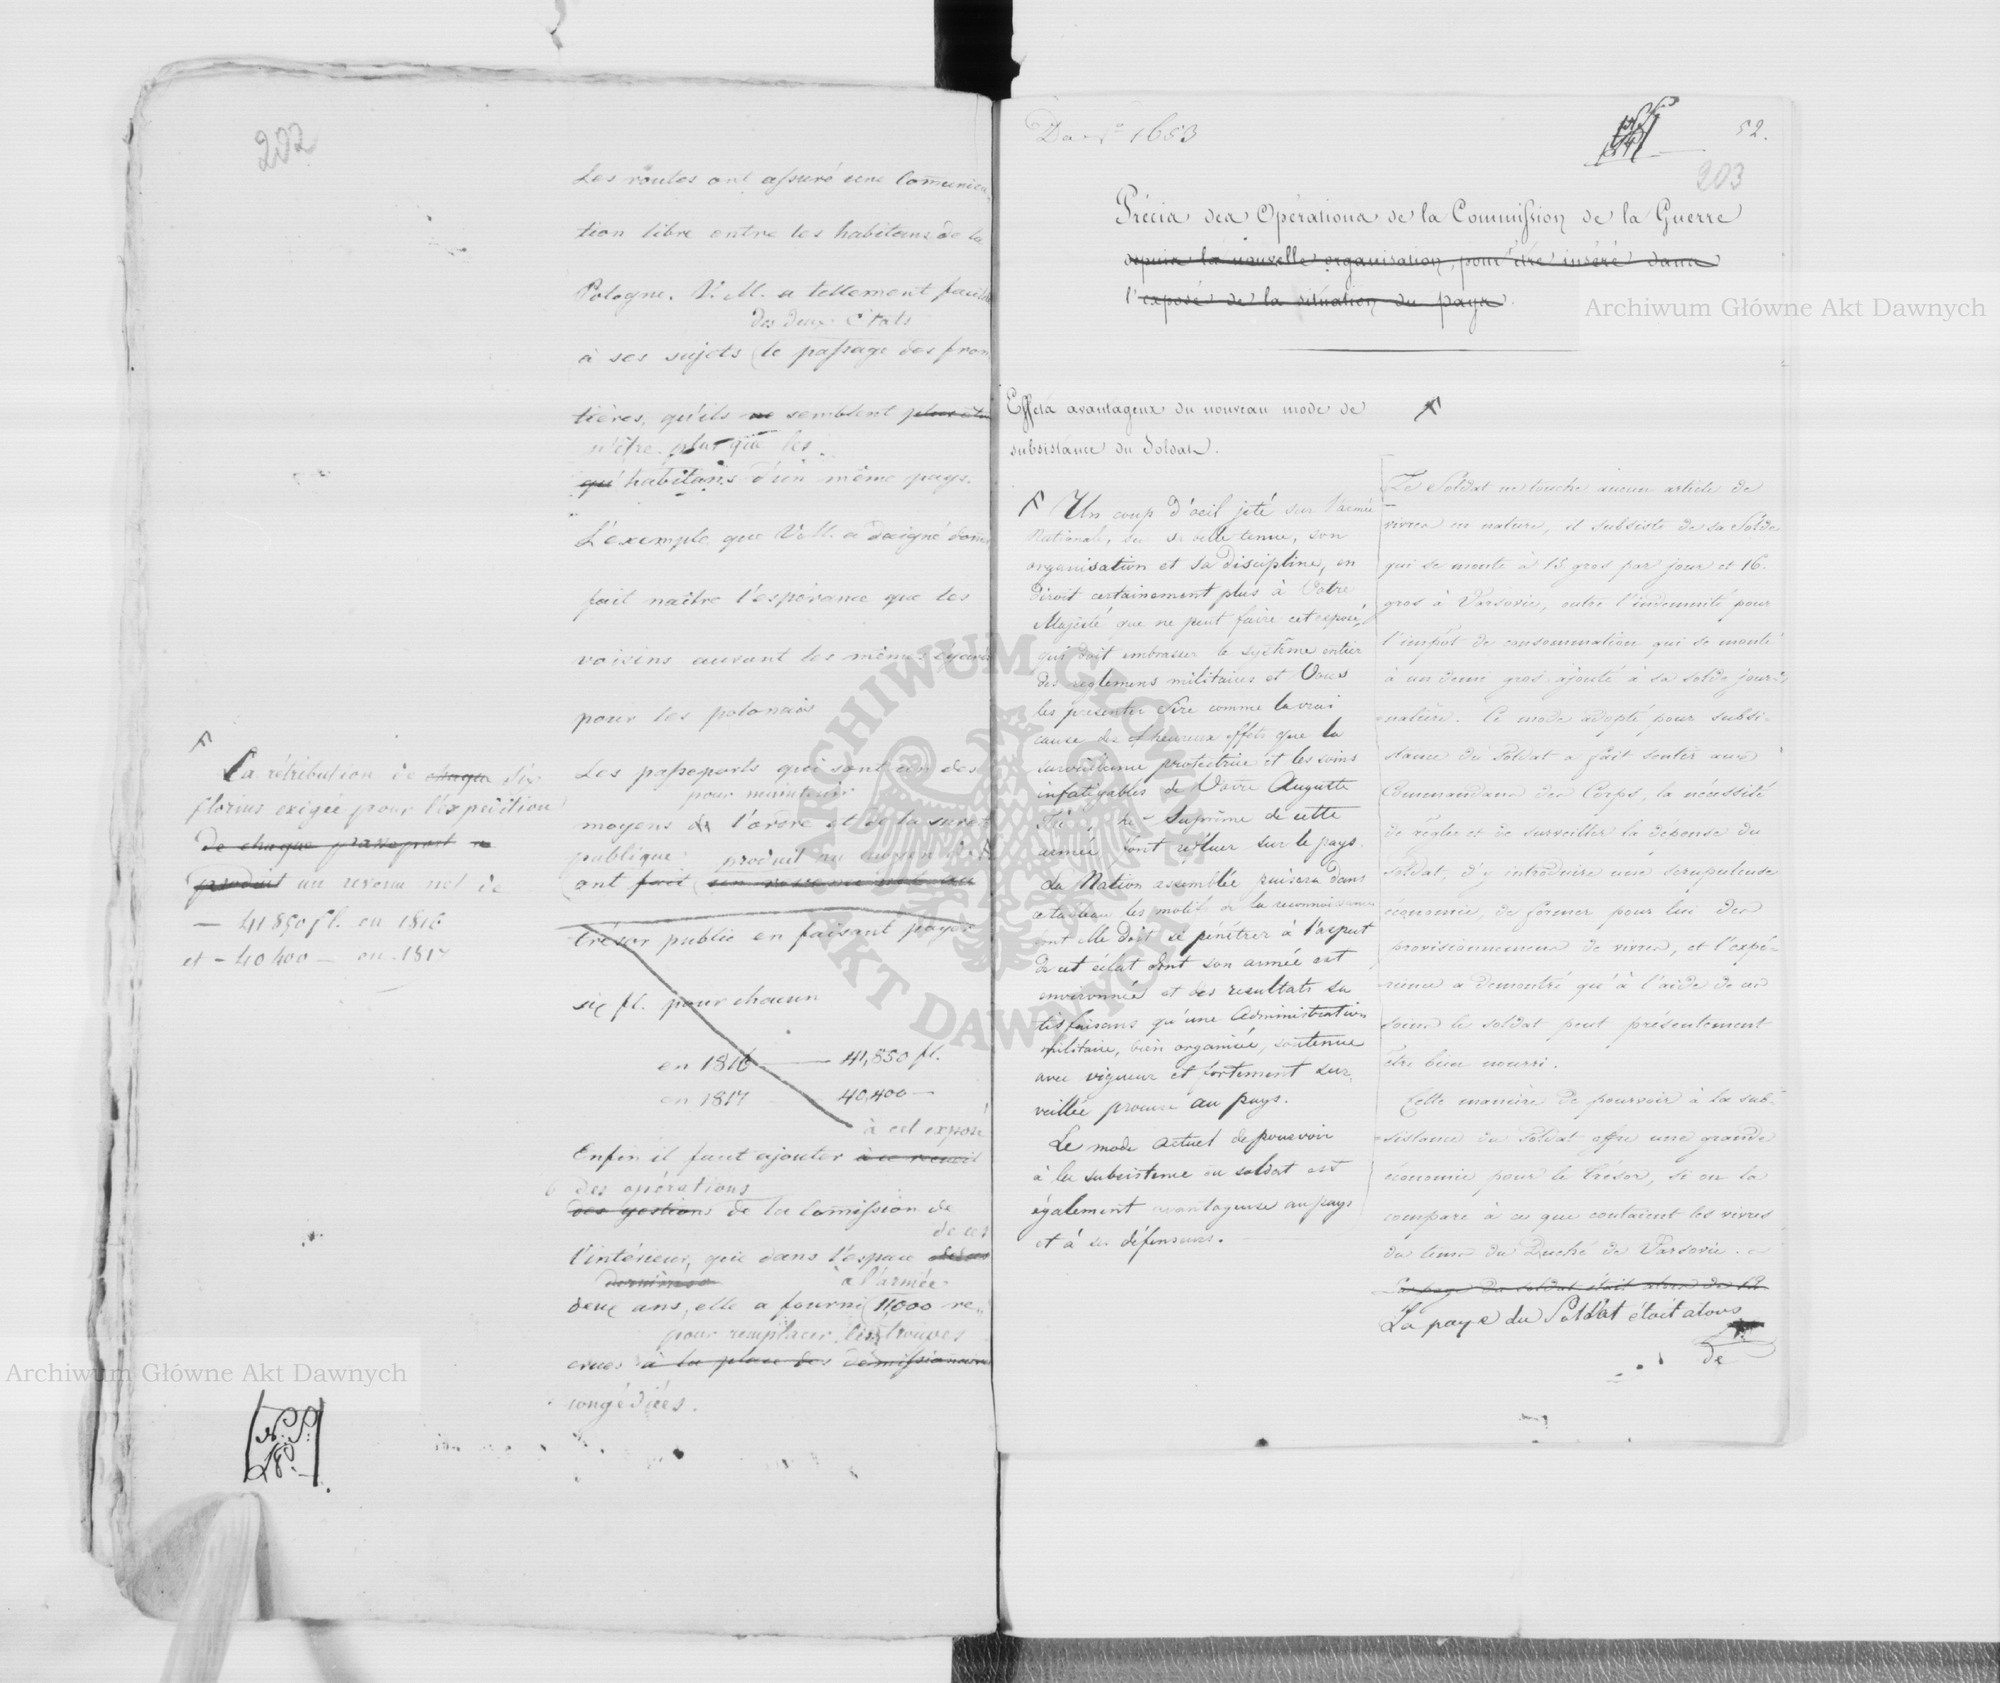 202
Les routes ont assuré une Comunica-
tion libre entre les habitans de la
Pologne. V. M. a tellement facilité
des deux Etats
à ses sujets le passage des fron
tières, qu'ils ne semblent plus être
n'être plus que les
qu'habitans d'un même pays.
L'exemple que V. M. a daigné donné
fait naître l'espérance que les
voisins auront les mêmes égards
pour les polonais
F
La rétribution de chaque six
florins exigée pour l'expédition
de chaque passeport a
produit un revenu net de
— 41850 fl. en 1816
et — 40400 — en 1817
Les passeports qui sont un des
pour maintenir
moyens de l'ordre et de la sureté
publique produit au moyen
ont fait un revenu
trésor public en faisant payer
six fl. pour chacun
en 1816 — 41,850 fl.
en 1817 — 40,400 —
à cet exposé
Enfin il faut ajouter à ce recueil
des opérations
des gestions de la Comission de
de ces
l'intérieur, que dans l'espace
dernières à l'armée
deux ans, elle a fourni 11,000 re-
pour remplacer les
crues à la place des démissionaires
congédiées.
Da N° 1653
52.
203
Précis des Opérations de la Commission de la Guerre
depuis la nouvelle organisation, pour être inséré dans
l'exposé de la situation du pays.
Effets avantageux du nouveau mode de
subsistance du Soldat.
F Un coup d'oeil jeté sur l'armée
Nationale, sur sa belle tenue, son
organisation et sa Discipline, en
diroit certainement plus à Votre
Majesté que ne peut faire cet exposé,
qui doit embrasser le système entier
des règlemens militaires et Vous
les présenter Sire comme la vrai
cause des heureux effets que la
surveillance protectrice et les soins
infatigables de Votre Auguste
Suprême de cette
armée font refluer sur le pays.
La Nation assemblée puisera dans
ce tableau les motifs de la reconnoissance
dont elle doit se pénétrer à l'aspect
de cet éclat dont son armée est
environnée et des resultats sa
tisfaisans qu'une Administration
militaire, bien organisée, soutenue
avec vigueur et fortement sur-
veillée procure au pays.
Le mode actuel de pourvoir
à la subsistence du soldat est
également avantageuse au pays
et à ses défenseurs.
Le Soldat ne touche aucun article de
vivres en nature, il subsiste de sa Solde
qui se monte à 15 gros par jour et 16.
gros à Varsovie, outre l'indemnité pour
l'impôt de consommation qui se monte
à un demi gros ajouté à sa solde jour-
nalière. Ce mode adopté pour subsi-
stance du Soldat a fait sentir aux
Commandans des Corps, la nécessité
de règler et de surveiller la dépense du
Soldat, d'y introduire une scrupuleuse
économie, de former pour lui des
provisionnemens de vivres, et l'expé-
rience a demontré qu'à l'aide de ces
soins le soldat peut présentement
être bien nourri.
Cette manière de pourvoir à la sub-
sistance du Soldat offre une grande
économie pour le trésor, si on la
compare à ce que coutaient les vivres
du tems du Duché de Varsovie.
La paye du soldat était alors de 12
La paye du Soldat étoit alors
de
Archiwum Główne Akt Dawnych
Archiwum Główne Akt Dawnych
ARCHIWUM GŁÓWNE
AKT DAWNYCH